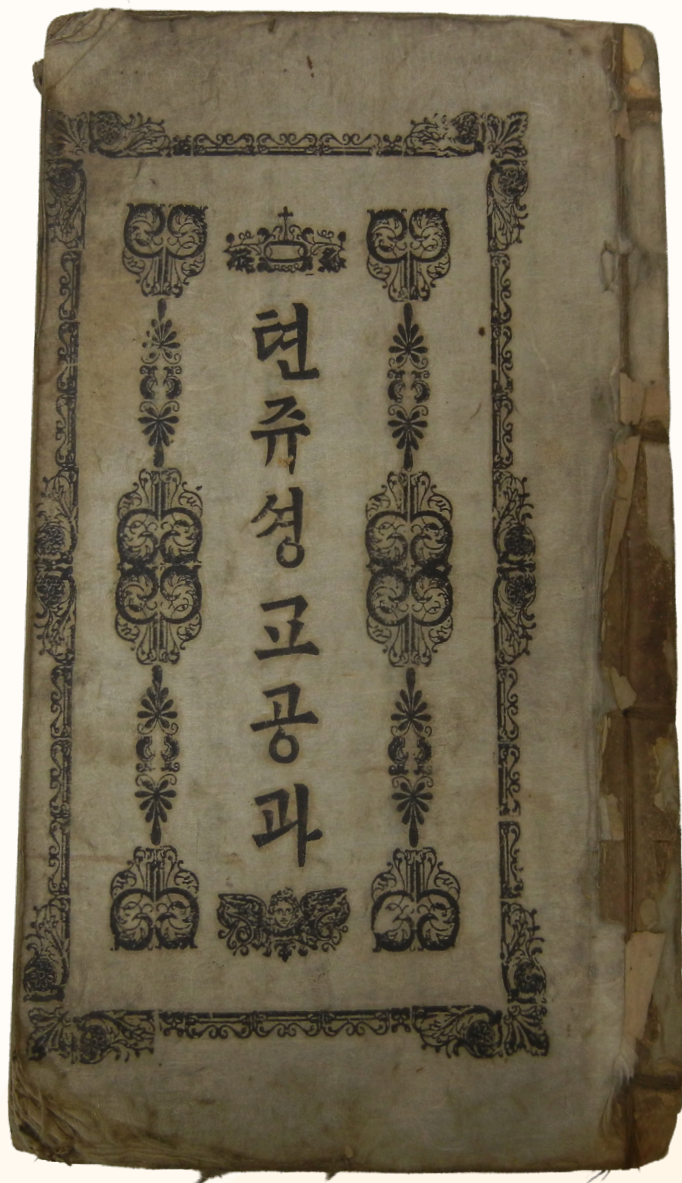 텬쥬셩교공과